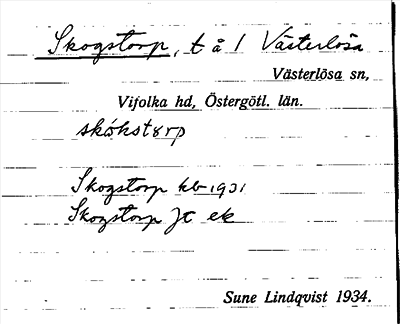 Skogstorp, t å 1 Västerlösa
Västerlösa sn,
Vifolka hd, Östergötl. län.
skóhstorp
Skogstorp kb 1931
Skogstorp Jc ek
Sune Lindqvist 1934.